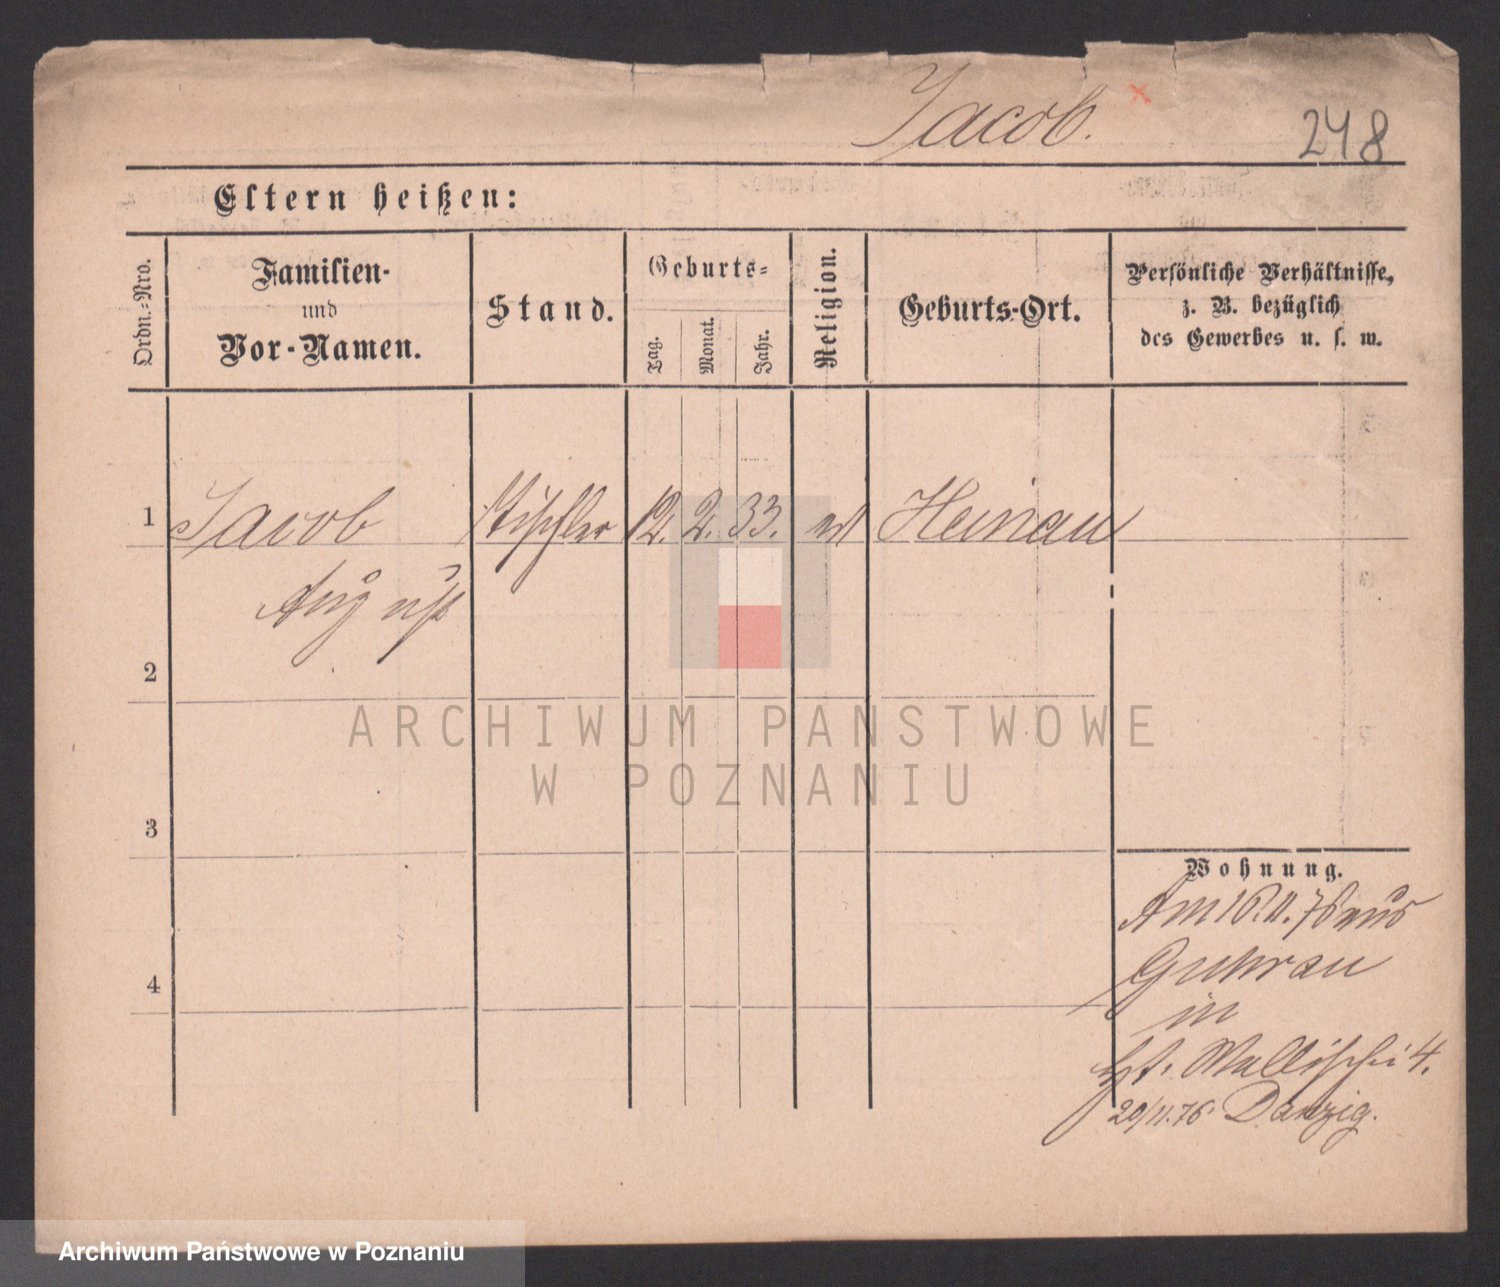 Jacob.
248
Eltern heißen:
Ordn.-Nro.
Familien-
und
Vor-Namen.
Stand.
Geburts-
Tag.
Monat.
Jahr.
Religion.
Geburts-Ort.
Persönliche Verhältnisse,
z. B. bezüglich
des Gewerbes u. s. w.
1 Jacob Tischler 12. 2. 33. Heinau
August
2
3
4
Wohnung.
Am 16.11.76 aus
Guhrau
in
Wallischei 4.
20/11.76 Danzig.
ARCHIWUM PAŃSTWOWE
W POZNANIU
Archiwum Państwowe w Poznaniu